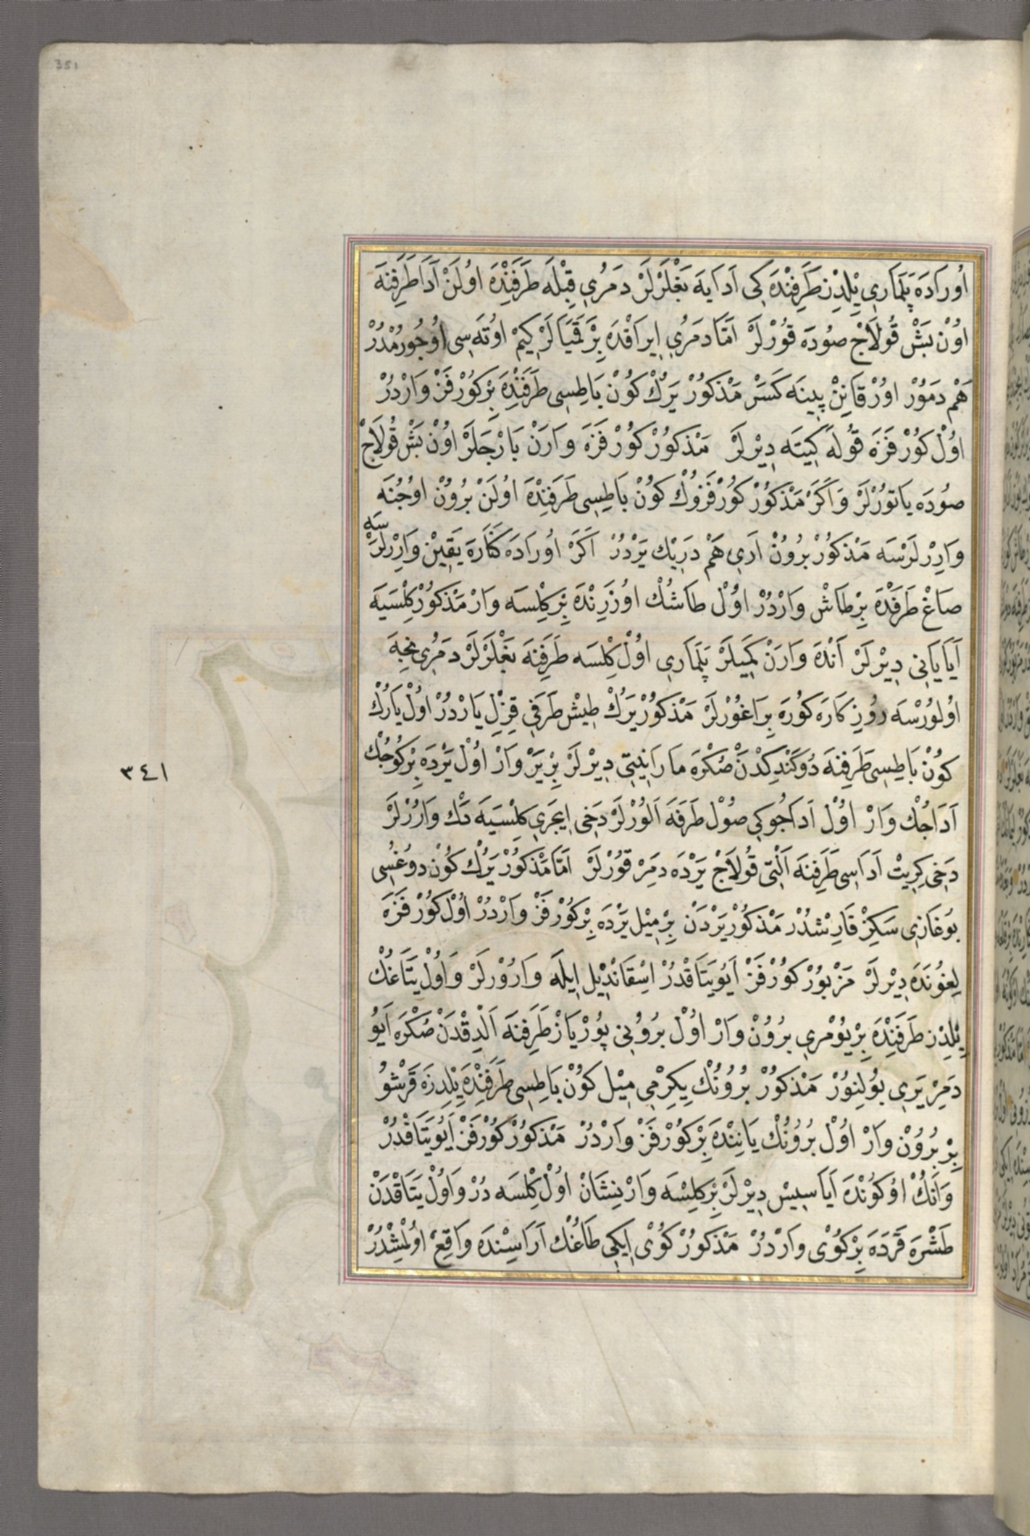 351
اُورَادَه پَلَمَارِي يِلْدِزْ طَرَفِنْدَه كِى اَدَايَه بَغْلَرْلَرْ دَمُرِي قِبْلَه طَرَفِنْدَه اُولَنْ اَدَا طَرَفِنَه
اُونْ بَشْ قُولَاجْ صُودَه قُورْلَرْ اَمَّا دَمُرِي اِيرَاقْدَه بِرَقْمَيَالَرْ كِيمْ اُوتَه سِى اُوچُورُمْدُرْ
هَمْ دَمُورْ اُورْقَانِنْ پِينَه كَسَرْ مَذْكُورْ يَرُكْ كُونْ بَاطِسِى طَرَفِنْدَه بِرْ كُورْفَزْ وَارْدُرْ
اُولْ كُورْفَزَه قُولَه كِيتَه دِيرْلَرْ مَذْكُورْ كُورْفَزَه وَارَنْ بَارْجَلَرْ اُونْ بَشْ قُولَاجْ
صُودَه يَاتُورْلَرْ وَاَكَرْ مَذْكُورْ كُورْفَزُوكْ كُونْ بَاطِسِى طَرَفِنْدَه اُولَنْ بُرُونْ اُوجُنَه
وَارِرْلَرْسَه مَذْكُورْ بُرُونْ اَرِي هَمْ دَرِيكْ يَرْدُرْ اَكَرْ اُورَادَه كَنَارَه يَقِينْ وَارِرْلَرْسَه
صَاغْ طَرَفِنْدَه بِرْ طَاشْ وَارْدُرْ اُولْ طَاشُكْ اُوزَرِنْدَه بِرْ كِلِسَه وَارْ مَذْكُورْ كِلِسَيَه
اَيَايَانِي دِيرْلَرْ اَنْدَه وَارَنْ كَمِيلَرْ پَلَمَارِي اُولْ كِلِسَه طَرَفِنَه بَغْلَرْلَرْ دَمُرِي نِجَه
اُولُورْسَه رُوزِكَارَه كُورَه بِرَاغُورْلَرْ مَذْكُورْ يَرُكْ طِيشْ طَرَفِي قِزِلْ يَارْدُرْ اُولْ يَارُكْ
كُونْ بَاطِسِى طَرَفِنَه دُوكَنْدِكْدَنْ صُكْرَه مَارَانِيتِي دِيرْلَرْ بِرْ يَرْ وَارْ اُولْ يَرْدَه بِرْ كُوجُكْ
اَدَاجُكْ وَارْ اُولْ اَدَاجُوكِي صُولْ طَرَفَه اَلُورْلَرْ دَخِى اِيچَرِي كِلِسَيَه دَكْ وَارُرْلَرْ
دَخِى كِرِيتْ اَدَاسِى طَرَفِنَه اَلْتِى قُولَاجْ يَرْدَه دَمِرْ قُورْلَرْ اَمَّا مَذْكُورْ يَرُكْ كُونْ دُوغُسِى
بُوغَازِي سَكِزْ قَارِشْدُرْ مَذْكُورْ يَرْدَنْ بِرْ مِيلْ يَرْدَه بِرْ كُورْفَزْ وَارْدُرْ اُولْ كُورْفَزَه
لِغُونَدَه دِيرْلَرْ مَزْبُورْ كُورْفَزْ اَيُو يَتَاقْدُرْ اِسْقَانْدِيلْ اِيلَه وَارُورْلَرْ وَاُولْ يَتَاغُكْ
يِلْدِزْ طَرَفِنْدَه بِرْ يُومْرِي بُرُونْ وَارْ اُولْ بُرُونِي پُورْيَازْ طَرَفِنَه اَلْدِقْدَنْ صُكْرَه اَيُو
دَمِرْ يَرِي بُولِنُورْ مَذْكُورْ بُرُونُكْ يِكِرْمِي مِيلْ كُونْ بَاطِسِى طَرَفِنْدَه يِلْدِزَه قَرْشُو
بِرْ بُرُونْ وَارْ اُولْ بُرُونُكْ يَانِنْدَه بِرْ كُورْفَزْ وَارْدُرْ مَذْكُورْ كُورْفَزْ اَيُو يَتَاقْدُرْ
وَاَنُكْ اُوكُونْدَه اَيَاسِيسْ دِيرْلَرْ بِرْ كِلِسَه وَارْ نِشَانْ اُولْ كِلِسَه دُرْ وَاُولْ يَتَاقْدَنْ
طَشْرَه قَرَدَه بِرْ كُوىْ وَارْدُرْ مَذْكُورْ كُوىْ اِيكِى طَاغُكْ اَرَاسِنْدَه وَاقِعْ اُولْمِشْدُرْ
٣٤١